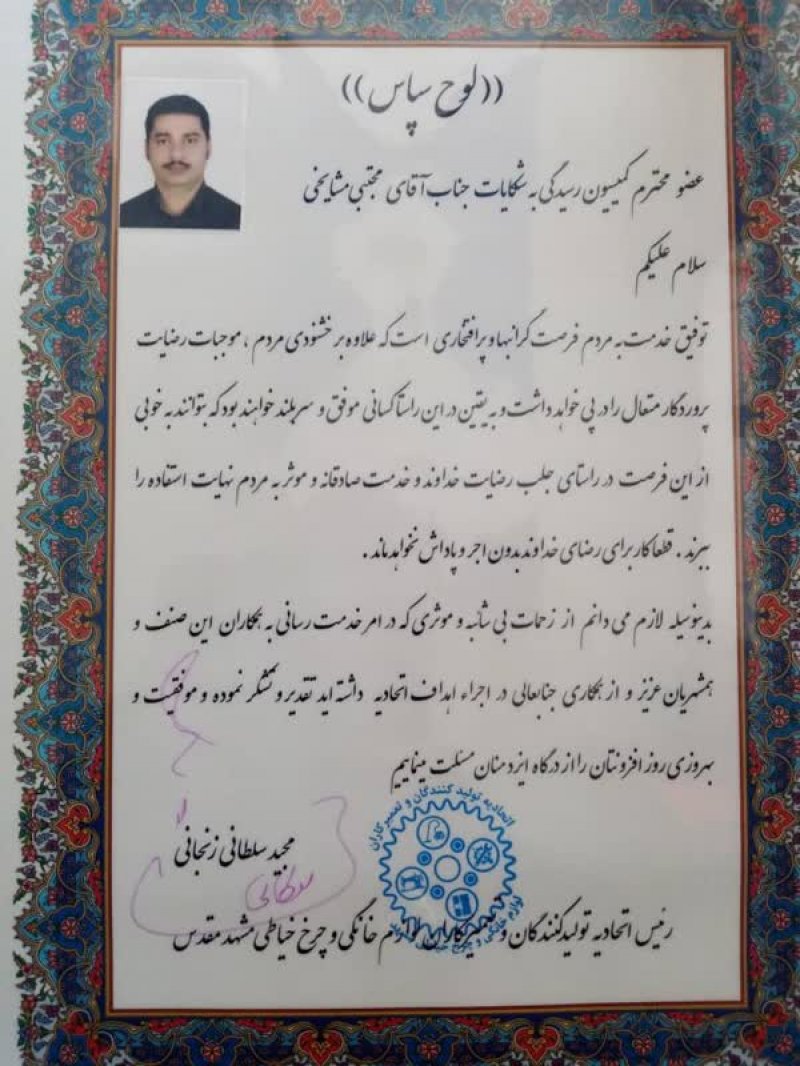 ((لوح سپاس))
عضو محترم کمیسیون رسیدگی به شکایات جناب آقای مجتبی مشایخی
سلام علیکم
توفیق خدمت به مردم فرصت گرانبها و پرافتخاری است که علاوه بر خشنودی مردم ، موجبات رضایت
پروردگار متعال را در پی خواهد داشت و به یقین در این راستا کسانی موفق و سربلند خواهند بود که بتوانند به خوبی
از این فرصت در راستای جلب رضایت خداوند و خدمت صادقانه و موثر به مردم نهایت استفاده را
ببرند . قطعا کار برای رضای خداوند بدون اجر و پاداش نخواهد ماند .
بدینوسیله لازم می دانم از زحمات بی شائبه و موثری که در امر خدمت رسانی به همکاران این صنف و
همشهریان عزیز و از همکاری جنابعالی در اجراء اهداف اتحادیه داشته اید تقدیر و تشکر نموده و موفقیت و
بهروزی روز افزونتان را از درگاه ایزد منان مسئلت مینماییم
اتحادیه تولید کنندگان و تعمیرکاران
لوازم خانگی و چرخ
مجید سلطانی زنجانی
رئیس اتحادیه تولیدکنندگان و تعمیرکاران لوازم خانگی و چرخ خیاطی مشهد مقدس